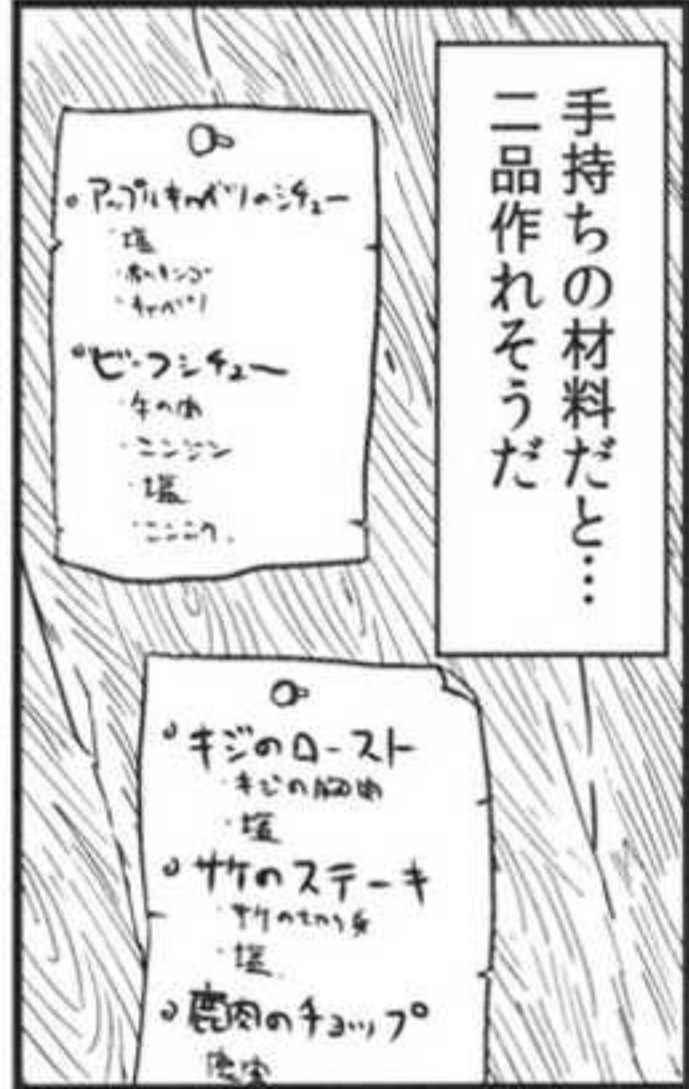 手持ちの材料だと…
二品作れそうだ
。アップルキャベツのシチュー
・塩
・赤リンゴ
・キャベツ
。ビーフシチュー
・牛の肉
・ニンジン
・塩
・ニンニク
。キジのロースト
・キジの胸肉
・塩
。サケのステーキ
・サケの切り身
・塩
。鹿肉のチョップ
鹿肉